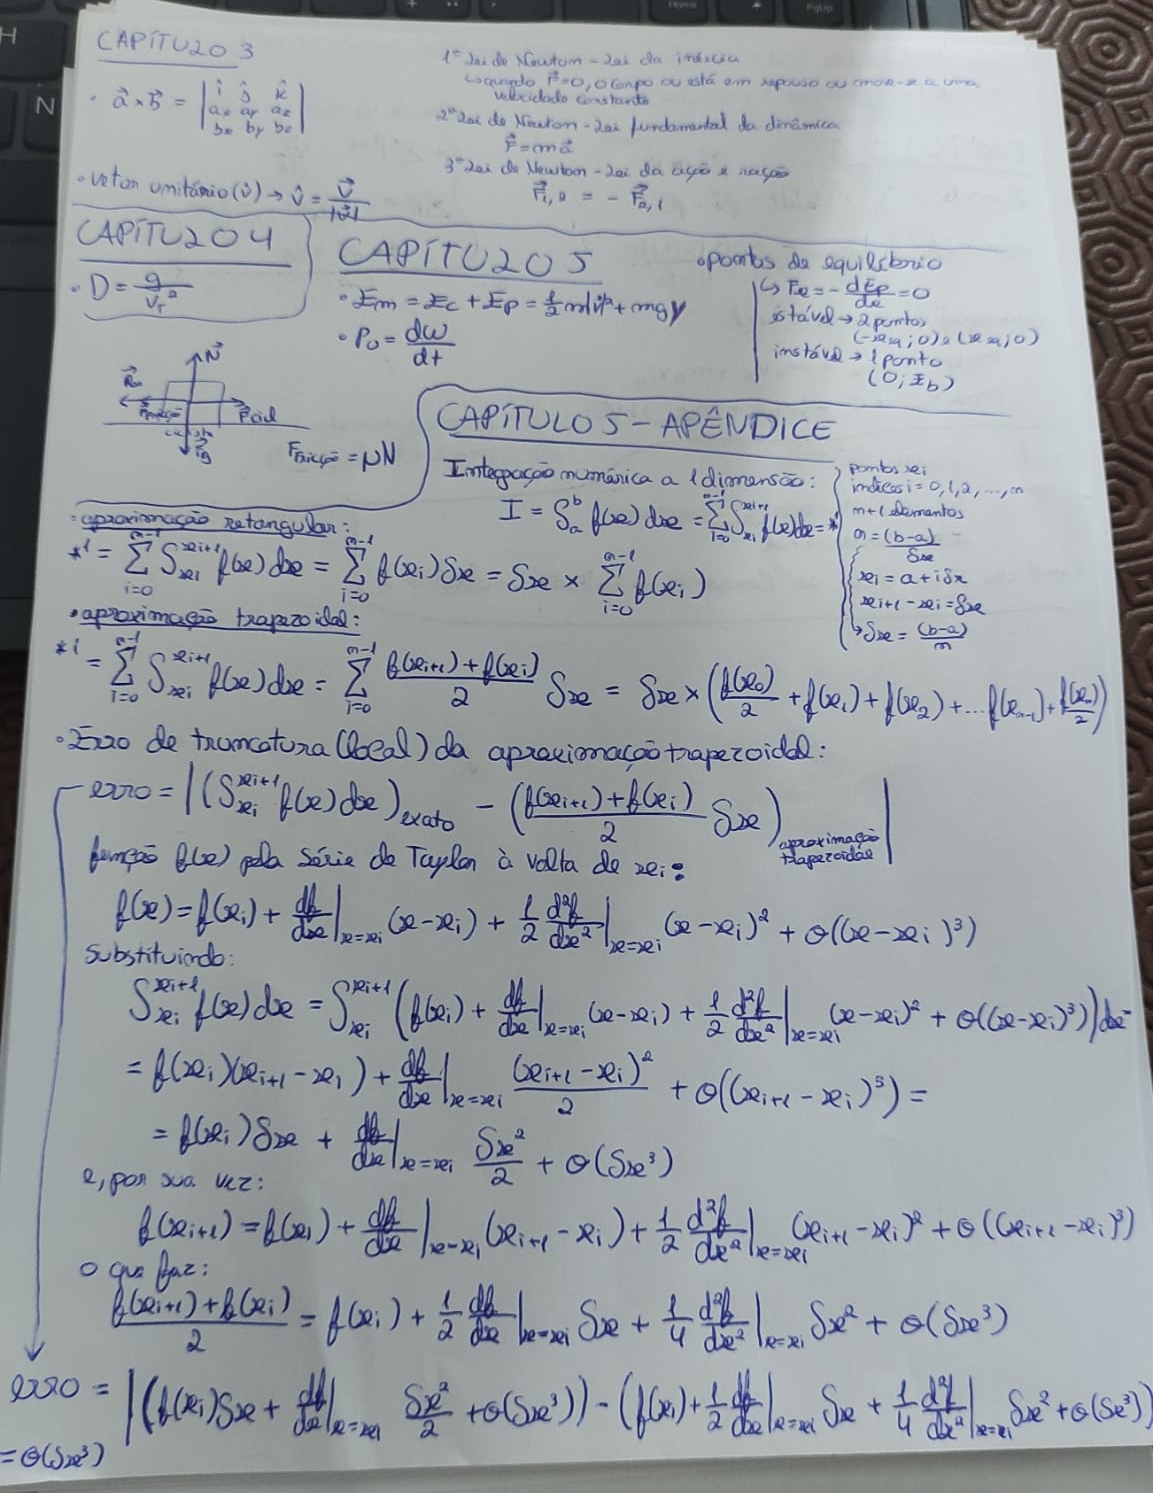 CAPÍTULO 3
• a⃗ × b⃗ = | î ĵ k̂ |
| ax ay az |
| bx by bz |
• vetor unitário (v̂) → v̂ = v⃗ / |v⃗|
1ª Lei de Newton - Lei da inércia
↳ quando F⃗ = 0, o corpo ou está em repouso ou move-se a uma
velocidade constante
2ª Lei de Newton - Lei fundamental da dinâmica
F⃗ = ma⃗
3ª Lei de Newton - Lei da ação e reação
F⃗1,2 = - F⃗2,1
CAPÍTULO 4
• D = g / vT²
CAPÍTULO 5
• Em = Ec + Ep = 1/2 m|v|² + mgy
• Po = dω/dt
• pontos de equilíbrio
↳ Fx = - dEp/dx = 0
estável → 2 pontos
instável → 1 ponto
(0; Eb)
N⃗
Fcicl
Fg
Ffricção = μN
CAPÍTULO 5 - APÊNDICE
Integração numérica a 1 dimensão:
I = ∫a^b f(x) dx = Σ(i=0, n-1) ∫xi^xi+1 f(x) dx = *¹
pontos xi
índices i = 0, 1, 2, ..., n
n+1 elementos
n = (b-a)/δx
xi = a + iδx
xi+1 - xi = δx
↳ δx = (b-a)/n
• aproximação retangular:
*¹ = Σ(i=0, n-1) ∫xi^xi+1 f(x) dx = Σ(i=0, n-1) f(xi) δx = δx × Σ(i=0, n-1) f(xi)
• aproximação trapezoidal:
*¹ = Σ(i=0, n-1) ∫xi^xi+1 f(x) dx = Σ(i=0, n-1) (f(xi+1) + f(xi))/2 δx = δx × (f(x0)/2 + f(x1) + f(x2) + ... f(xn-1) + f(xn)/2)
• Erro de truncatura (local) da aproximação trapezoidal:
erro = |(∫xi^xi+1 f(x) dx)exato - ((f(xi+1) + f(xi))/2 δx)aproximação trapezoidal|
função f(x) pela série de Taylor à volta de xi:
f(x) = f(xi) + df/dx|x=xi (x - xi) + 1/2 d²f/dx²|x=xi (x - xi)² + O((x - xi)³)
Substituindo:
∫xi^xi+1 f(x) dx = ∫xi^xi+1 (f(xi) + df/dx|x=xi (x - xi) + 1/2 d²f/dx²|x=xi (x - xi)² + O((x - xi)³)) dx =
= f(xi)(xi+1 - xi) + df/dx|x=xi (xi+1 - xi)²/2 + O((xi+1 - xi)³) =
= f(xi) δx + df/dx|x=xi δx²/2 + O(δx³)
e, por sua vez:
f(xi+1) = f(xi) + df/dx|x=xi (xi+1 - xi) + 1/2 d²f/dx²|x=xi (xi+1 - xi)² + O((xi+1 - xi)³)
o que faz:
(f(xi+1) + f(xi))/2 = f(xi) + 1/2 df/dx|x=xi δx + 1/4 d²f/dx²|x=xi δx² + O(δx³)
erro = |(f(xi) δx + df/dx|x=xi δx²/2 + O(δx³)) - (f(xi) + 1/2 df/dx|x=xi δx + 1/4 d²f/dx²|x=xi δx² + O(δx³))
= O(δx³)